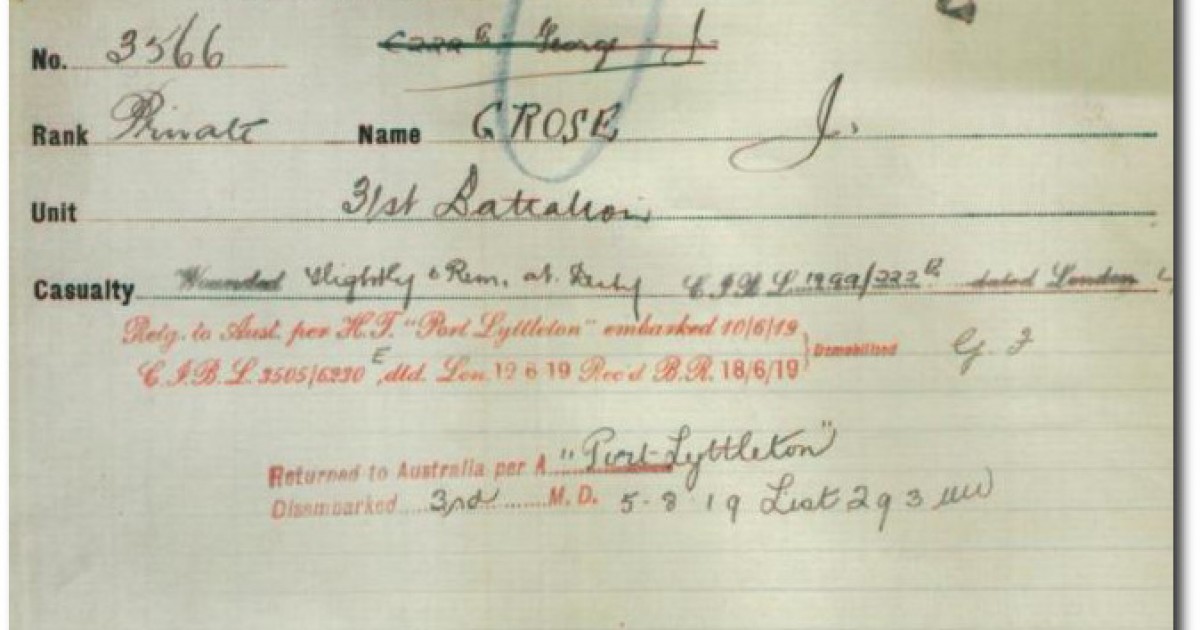 No. 3566 George J.
Rank Private Name GROSE J.
Unit 31st Battalion
Casualty Wounded Slightly & Rem. at Duty C.I.B.L. 1999/222 B dated London
Retg. to Aust. per H.T. "Port Lyttleton" embarked 10/6/19
C.I.B.L. 3505/6230 E, dtd. Lon. 12 6 19 Rec'd B.R. 18/6/19 Demobilised G. J
Returned to Australia per A "Port Lyttleton"
Disembarked 3rd M. D. 5-8 19 List 293